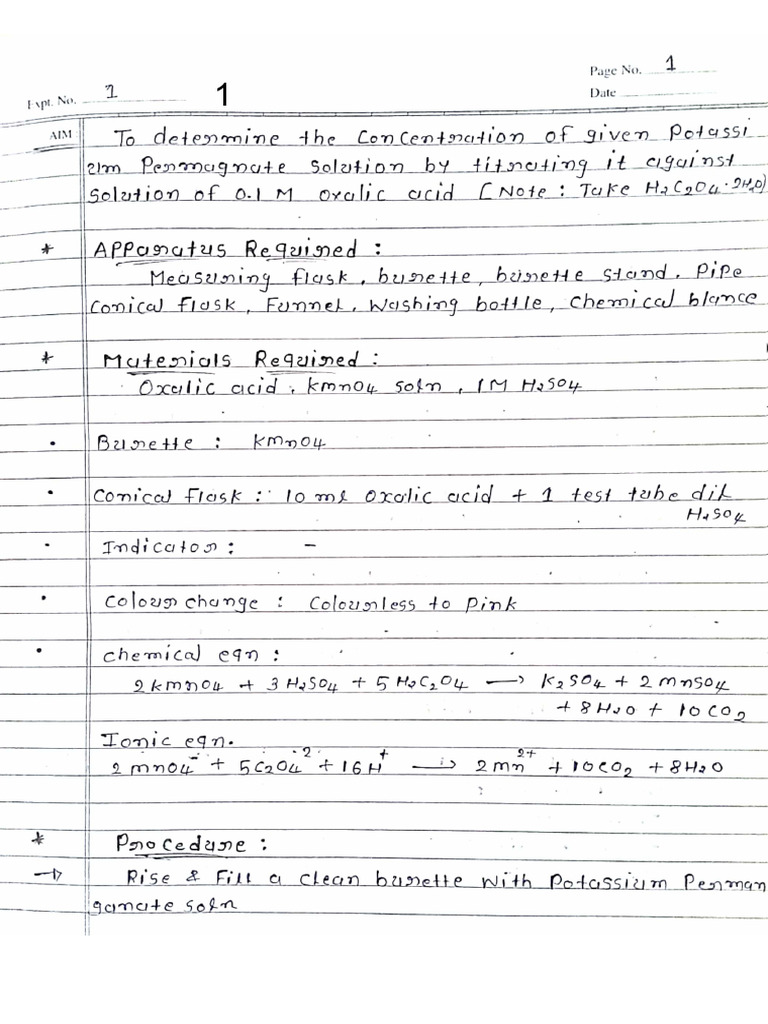 Page No. 1
Expt. No. 1
1
Date
AIM
To determine the Concentration of given Potassi
um Permagnate Solution by titrating it against
Solution of 0.1 M oxalic acid [Note : Take H2C2O4·2H2O)
* Apparatus Required :
Measuring flask, burette, burette stand, Pipe
Conical flask, Funnel, Washing bottle, Chemical blance
* Materials Required :
Oxalic acid, kmno4 soln, 1M H2SO4
• Burette : kmno4
• Conical flask : 10 ml oxalic acid + 1 test tube dil
H2SO4
• Indicator : -
• Colour change : Colourless to Pink
• chemical eqn :
2 kmno4 + 3 H2SO4 + 5 H2C2O4 → K2SO4 + 2 mnSO4
+ 8 H2O + 10 CO2
Ionic eqn.
2 mnO4⁻ + 5C2O4⁻² + 16H⁺ → 2mn²⁺ + 10CO2 + 8H2O
* Procedure :
→ Rise & Fill a clean burette with Potassium Perman
ganate soln